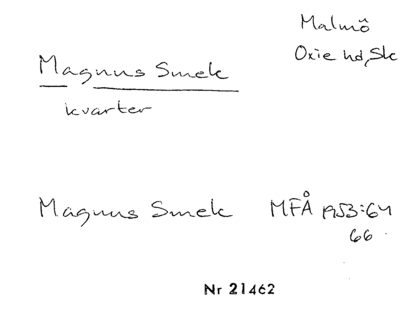 Malmö
Oxie hd, Sk
Magnus Smek
kvarter
Magnus Smek MFÅ 1953:64
66
Nr 21462